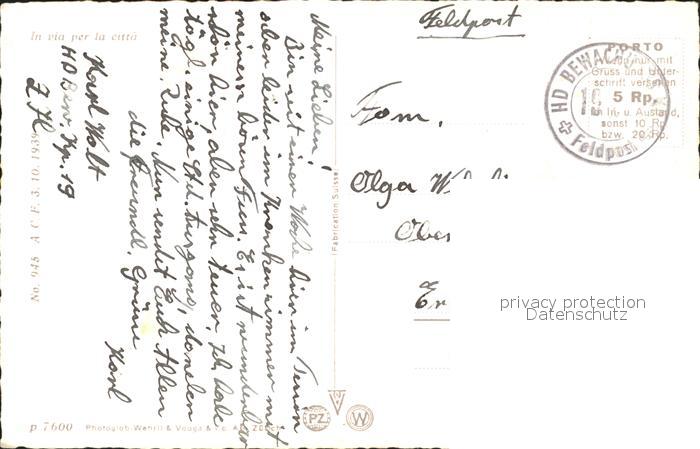 In via per la città
Feldpost
PORTO
wenn nur mit
Gruss und Unter-
schrift versehen
5 Rp.
in In- u. Ausland,
sonst 10 Rp.
bzw. 20 Rp.
HD BEWACH
19
Feldpost
Fam.
Olga W
Obe
Er
privacy protection
Datenschutz
Meine Lieben!
Bin seit einer Woche hier im Tessin
aber leider im Krankenzimmer mit
meinem Fuss. Es ist wunderbar
schön hier, aber sehr teuer, ich habe
tägl. einige Std. Ausgang, daneben
meine Ruhe. Nun sendet Euch Allen
die freundl. Grüsse
Karl
Karl Wolt
HD Bew. Kp. 19
Z. H.
No. 948 A C F 3. 10. 1939
Fabrication Suisse
p 7600 Photoglob-Wehrli & Vouga & Co. A.G. Zürich
PZ
W